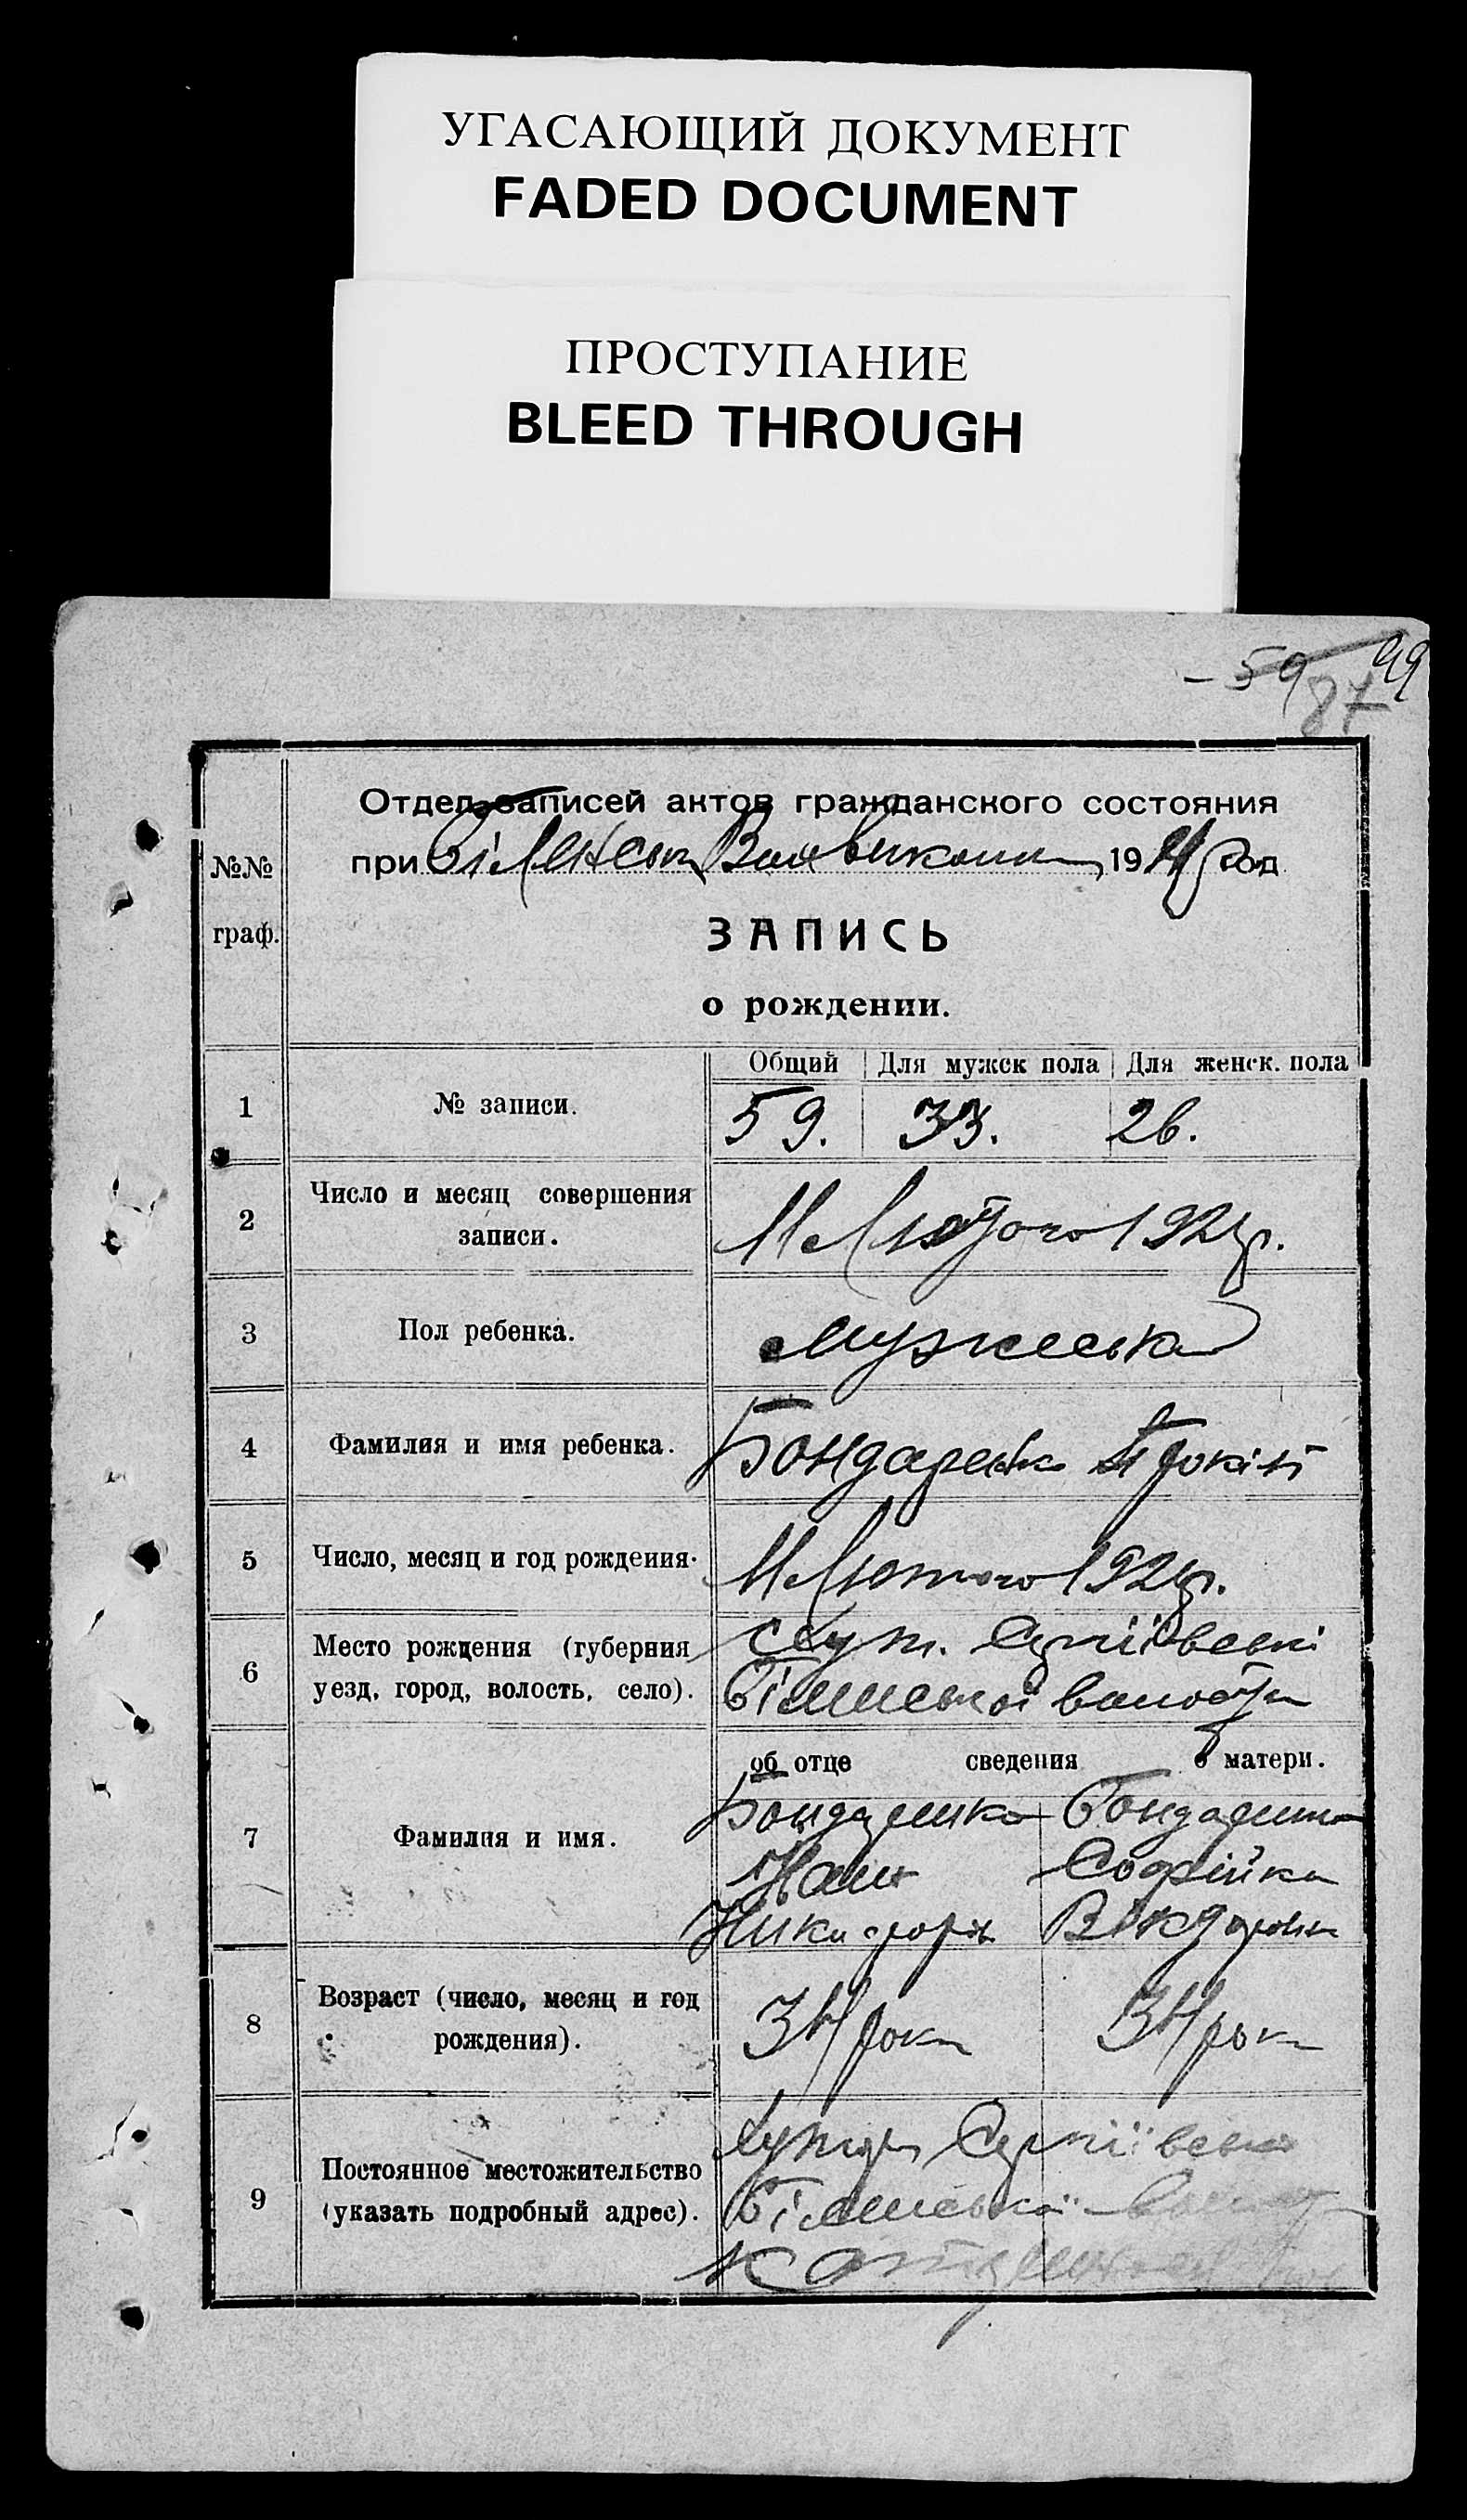 УГАСАЮЩИЙ ДОКУМЕНТ
FADED DOCUMENT
ПРОСТУПАНИЕ
BLEED THROUGH
59 99
87
Отдел записей актов гражданского состояния
при 19 год
№№
граф.
ЗАПИСЬ
о рождении.
Общий Для мужск пола Для женск. пола
1 № записи. 59. 33. 26.
2 Число и месяц совершения
записи. 11 Лютого 192 р.
3 Пол ребенка. мужеська
4 Фамилия и имя ребенка. Бондаренко
5 Число, месяц и год рождения. 11 Лютого 192 р.
6 Место рождения (губерния
уезд, город, волость, село). Хут. Сергіївські
волости
об отце сведения о матери.
7 Фамилия и имя. Бондаренко Бондаренко
Иван Софійка
Никифорів
8 Возраст (число, месяц и год
рождения). 34 рок 34 рок
9 Постоянное местожительство
(указать подробный адрес). Хутор Сергіївськ